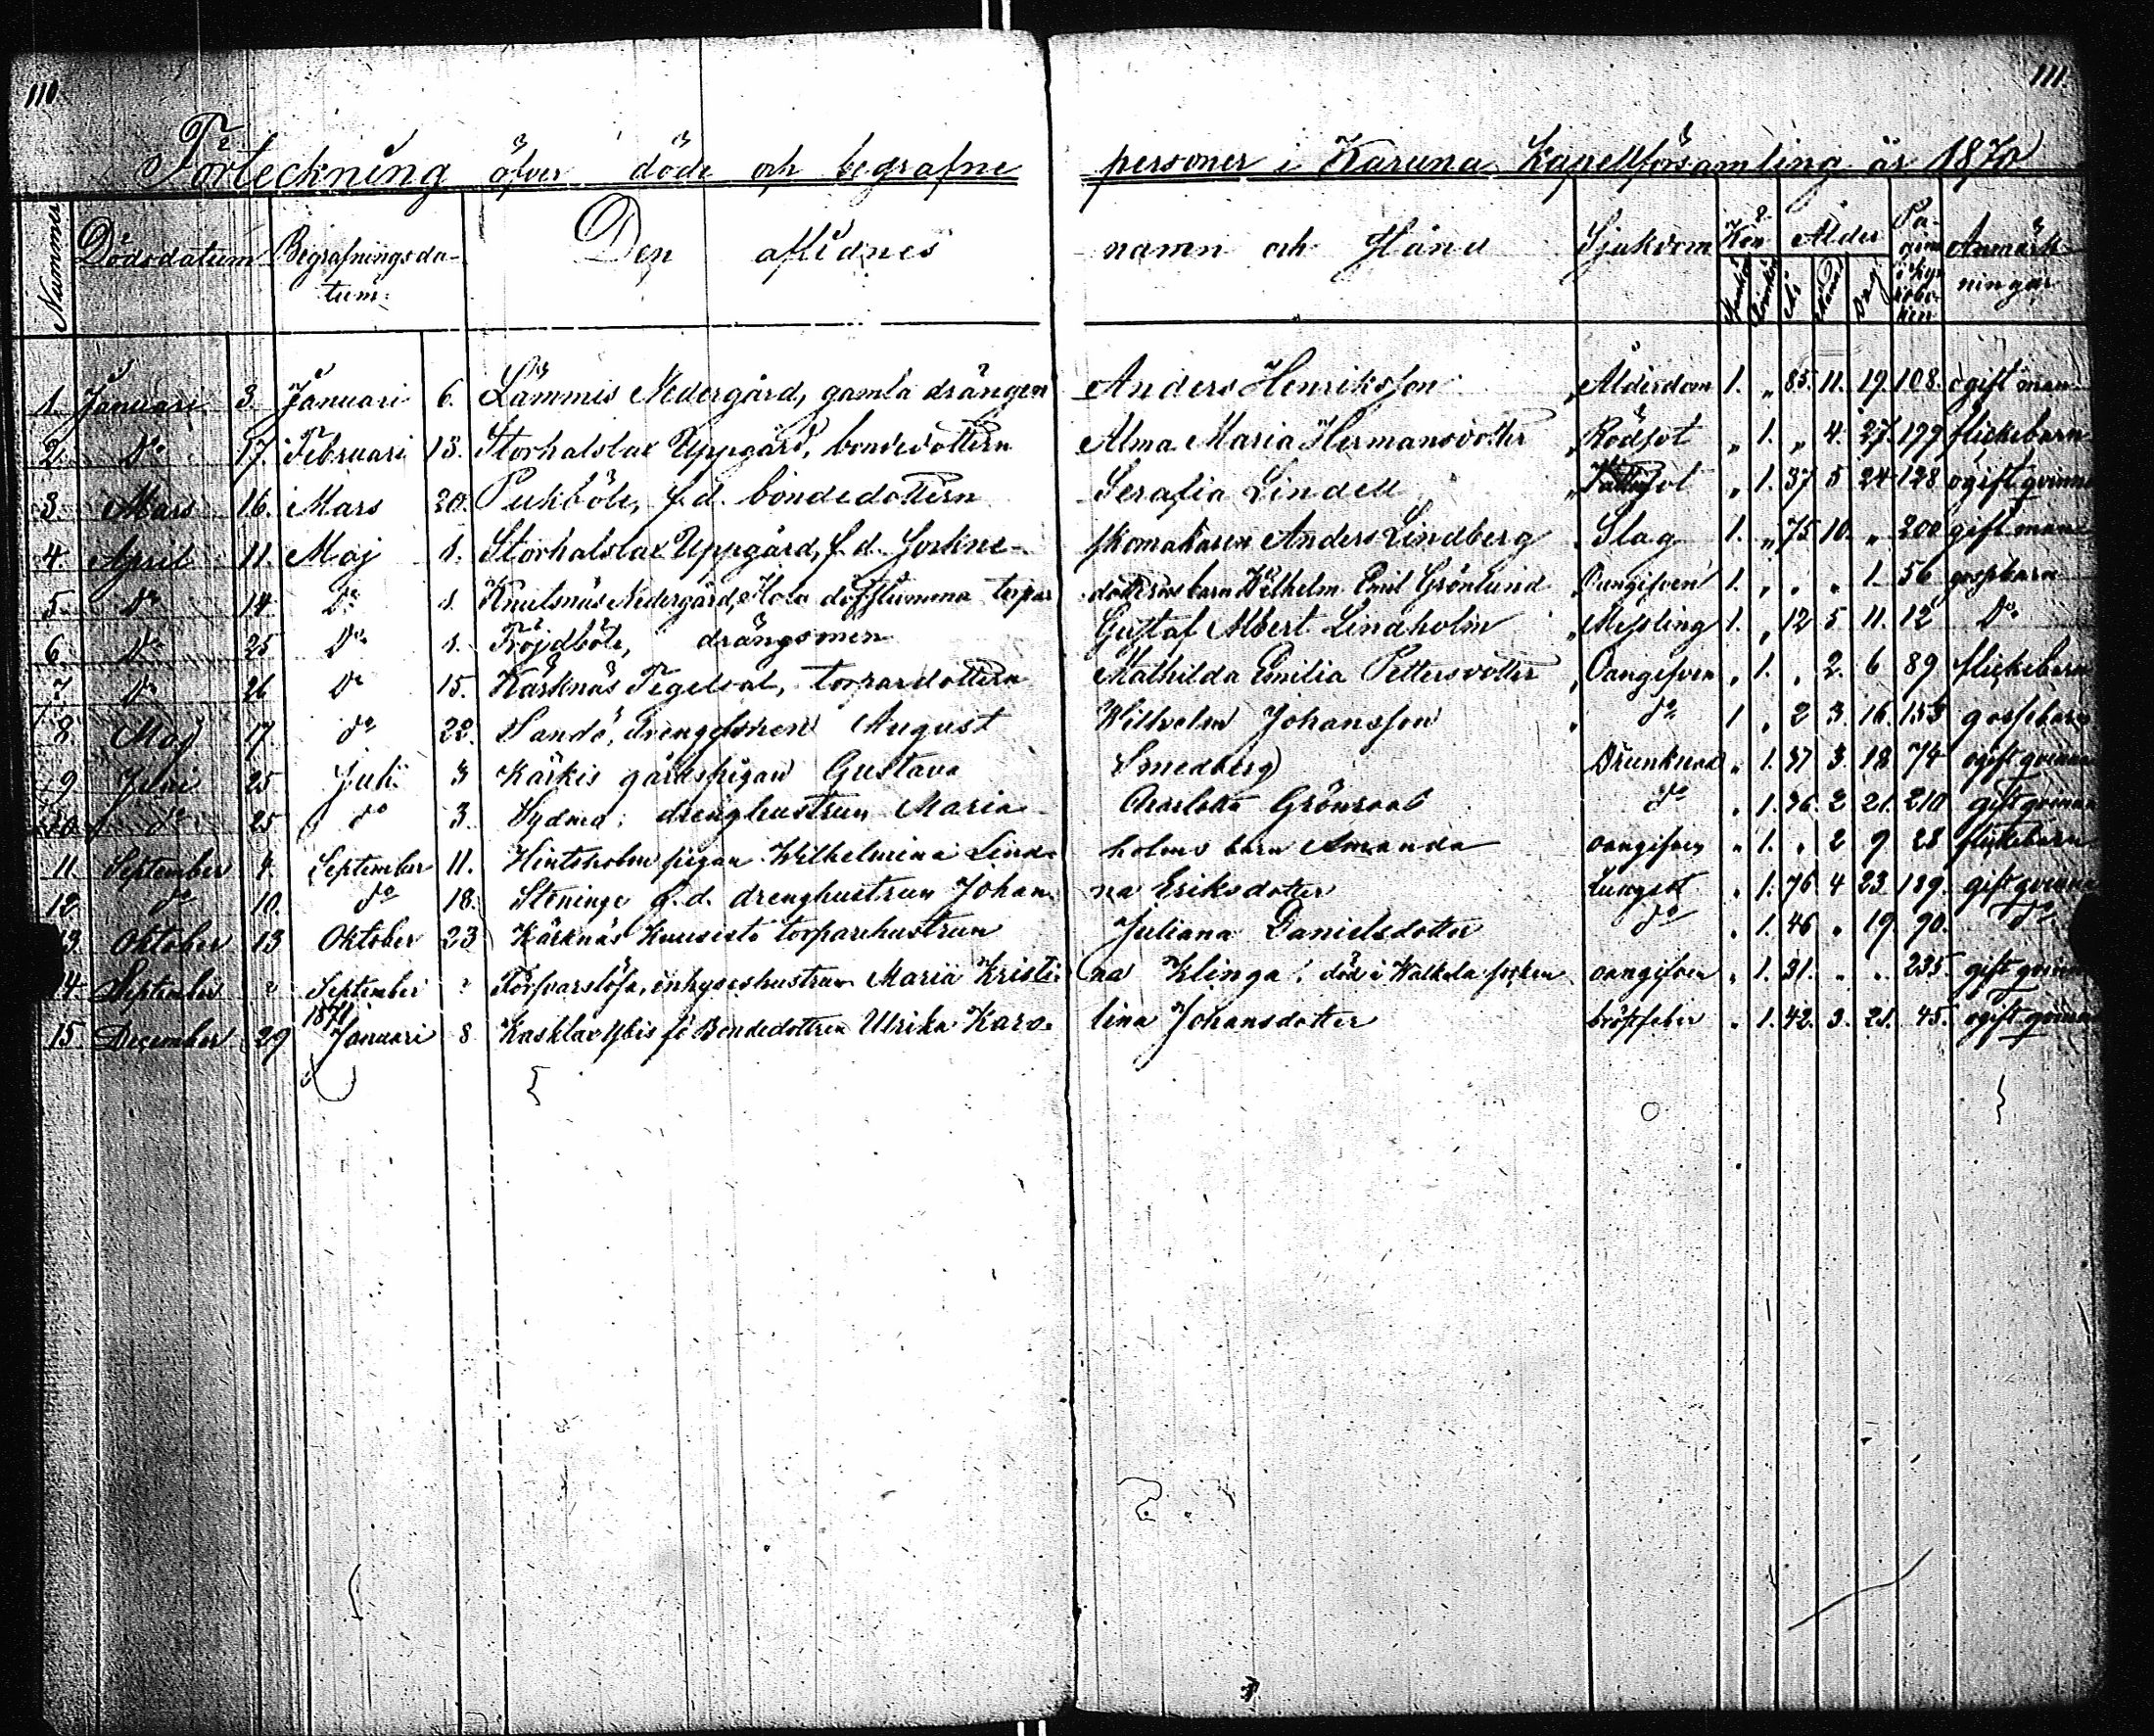 110.
111.
Förteckning öfver döde och begrafne personer i Karuna Kapellförsamling år 1870.
Nummer Dödsdatum Begrafningsda- Den aflidnes namn och stånd Sjukdom Kön Ålder Pa- Anmärk-
tum. Mankön Qvinkön År Månad Dag gina i kyr kobo- ken ningar
1. Januari 3. Januari 6. Lämmis Nedergård, gamla drängen Anders Henriksson Ålderdom 1. „ 85. 11. 19. 108. ogift man
2. Do 17. Februari 13. Storhalslax Uppgård, bondedottern Alma Maria Hermansdotter Rödsot „ 1. „ 4. 27. 179 flickebarn
3. Mars 16. Mars 20. Pukböle, f.d. bondedottern Serafia Lindell „ 1. 37 5 24 128 ogift qvinna
4. April 11. Maj 1. Storhalslax Uppgård, f.d. Sockne- skomakaren Anders Lindberg Slag 1. „ 75 10. „ 200 gift man
5 Do 14 Do 1. Knulsnäs Nedergård, döfstumma torpar dotterns barn Wilhelm Emil Grönlund Oangifven 1. „ „ „ 1 56 gossebarn
6. Do 25 Do 1. Fröjdböle, drängsonen Gustaf Albert Lindholm Messling 1. „ 12 5 11. 12 Do
7 Do 26 Do 15. Kärknäs Tegelsal, torparedottern Mathilda Emilia Pettersdotter Oangifven „ 1. „ 2. 6 89 flickebarn
8. Maj 17. do 22. Sandö, drengsonen August Wilhelm Johansson do 1 „ 2 3. 16. 153 gossebarn
9 Juni 25 Juli 3 Kärkis gårdspigan Gustava Smedberg Drunknad „ 1. 37 3. 18. 74 ogift qvinna
10. do 25 do 3. Sydmo, drenghustrun Maria Charlotta Grönroos do „ 1. 36. 2 21. 210 gift qvinna
11. September 4. September 11. Hintsholm pigan Wilhelmina Lind- holms barn Amanda oangifven „ 1. „ 2 9 28 flickebarn
12 do 10. do 18. Steninge f.d. drenghustrun Johan- na Eriksdotter Lungsot „ 1. 76 4 23. 189. gift qvinna
13. Oktober 13 Oktober 23 Kärknäs Kuusisto torparehustrun Juliana Danielsdotter do „ 1. 46 „ 19. 90. do
14. September ? September ? Försvarslösa, inhyseshustrun Maria Kristi- na Klinga, död i Walkela socken oangifven „ 1. 31. „ „ 235. gift qvinna
15 December 29 1871 Januari 8 Kasklax Ysbis fd Bondedottren Ulrika Karo- lina Johansdotter bröstfeber „ 1. 42. 3. 21. 45. ogift qvinna